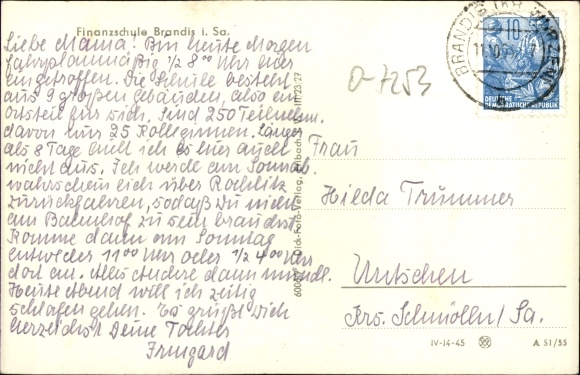 Finanzschule Brandis i. Sa.
Liebe Mama! Bin heute Morgen
fahrplanmäßig 1/2 8 00 Uhr hier
eingetroffen. Die Schule besteht
aus 9 großen Gebäuden, also ein
Ortsteil für sich. Sind 250 Teilnehm.
davon nur 25 Kolleginnen. Länger
als 8 Tage halt ich es hier auch
nicht aus. Ich werde am Sonnab.
wahrscheinlich über Rochlitz
zurückfahren, sodaß Du nicht
am Bahnhof zu sein brauchst.
Komme dann am Sonntag
entweder 11 00 Uhr oder 1/2 4 00 Uhr
dort an. Alles Andere dann mündl.
Heute Abend will ich zeitig
schlafen gehen. Es grüßt Dich
herzlichst Deine Tochter
Irmgard
Dick-Foto-Verlag, Erlbach
O-7253
BRANDIS (KR WURZEN)
10
DEUTSCHE
DEMOKRATISCHE REPUBLIK
Frau
Hilda Trümmer
Untschen
Krs. Schmölln/Sa.
IV-14-45
A 51/55